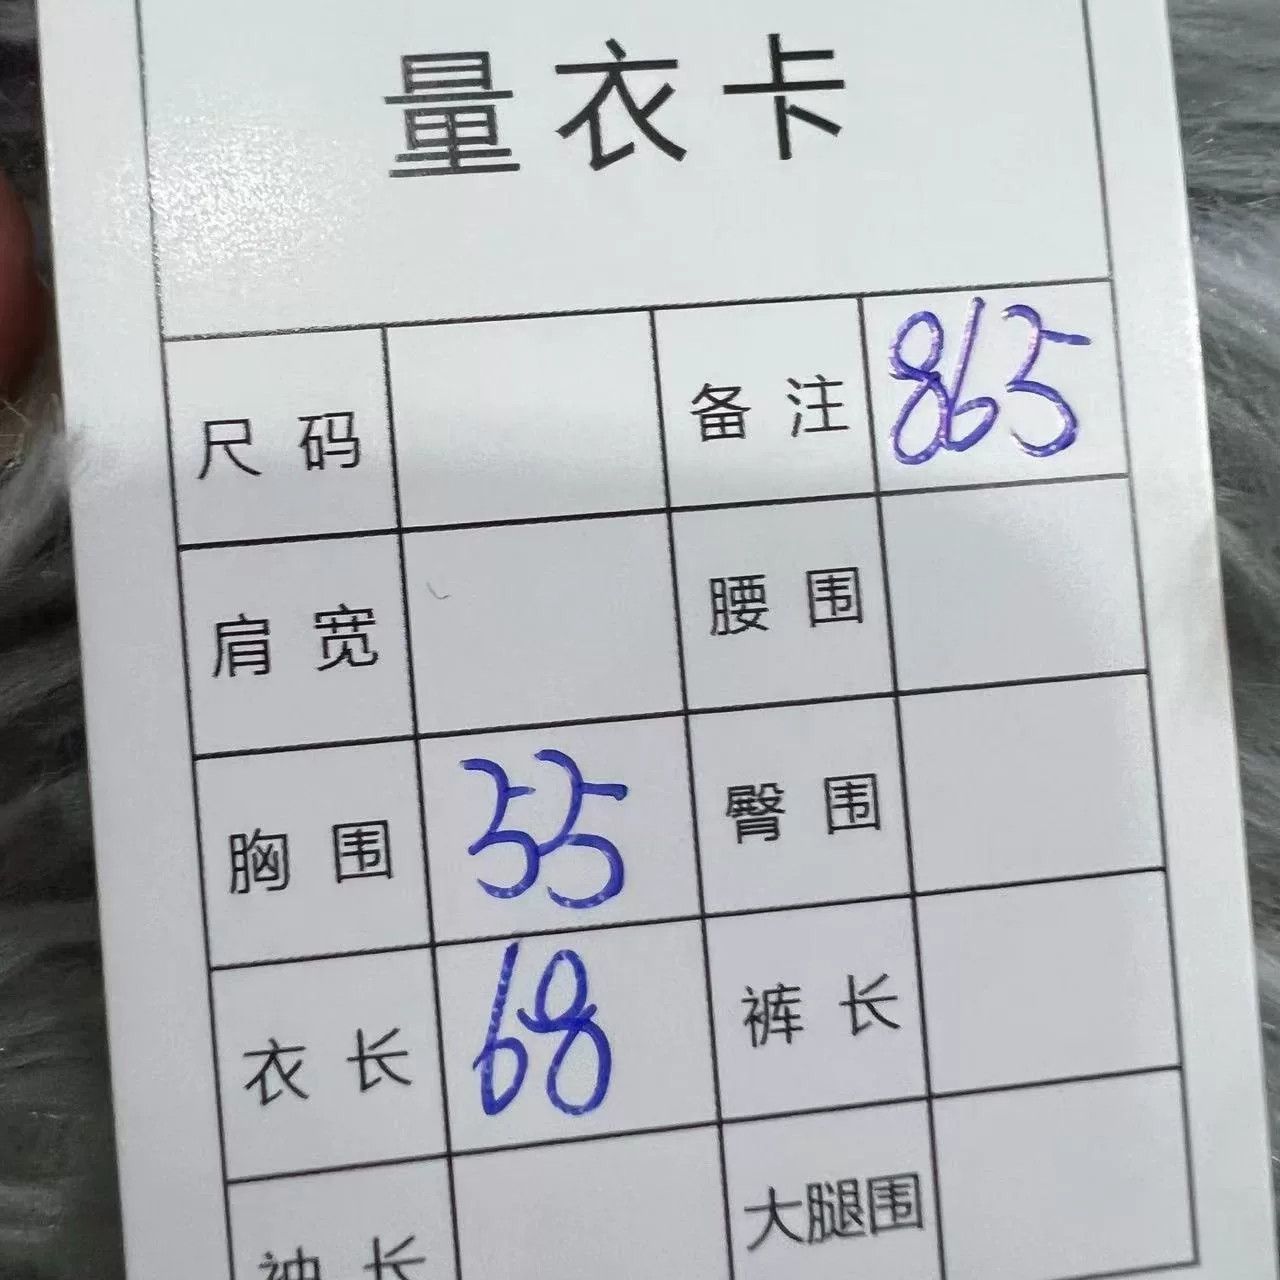 量衣卡
尺码 备注 865
肩宽 腰围
胸围 55 臀围
衣长 68 裤长
袖长 大腿围